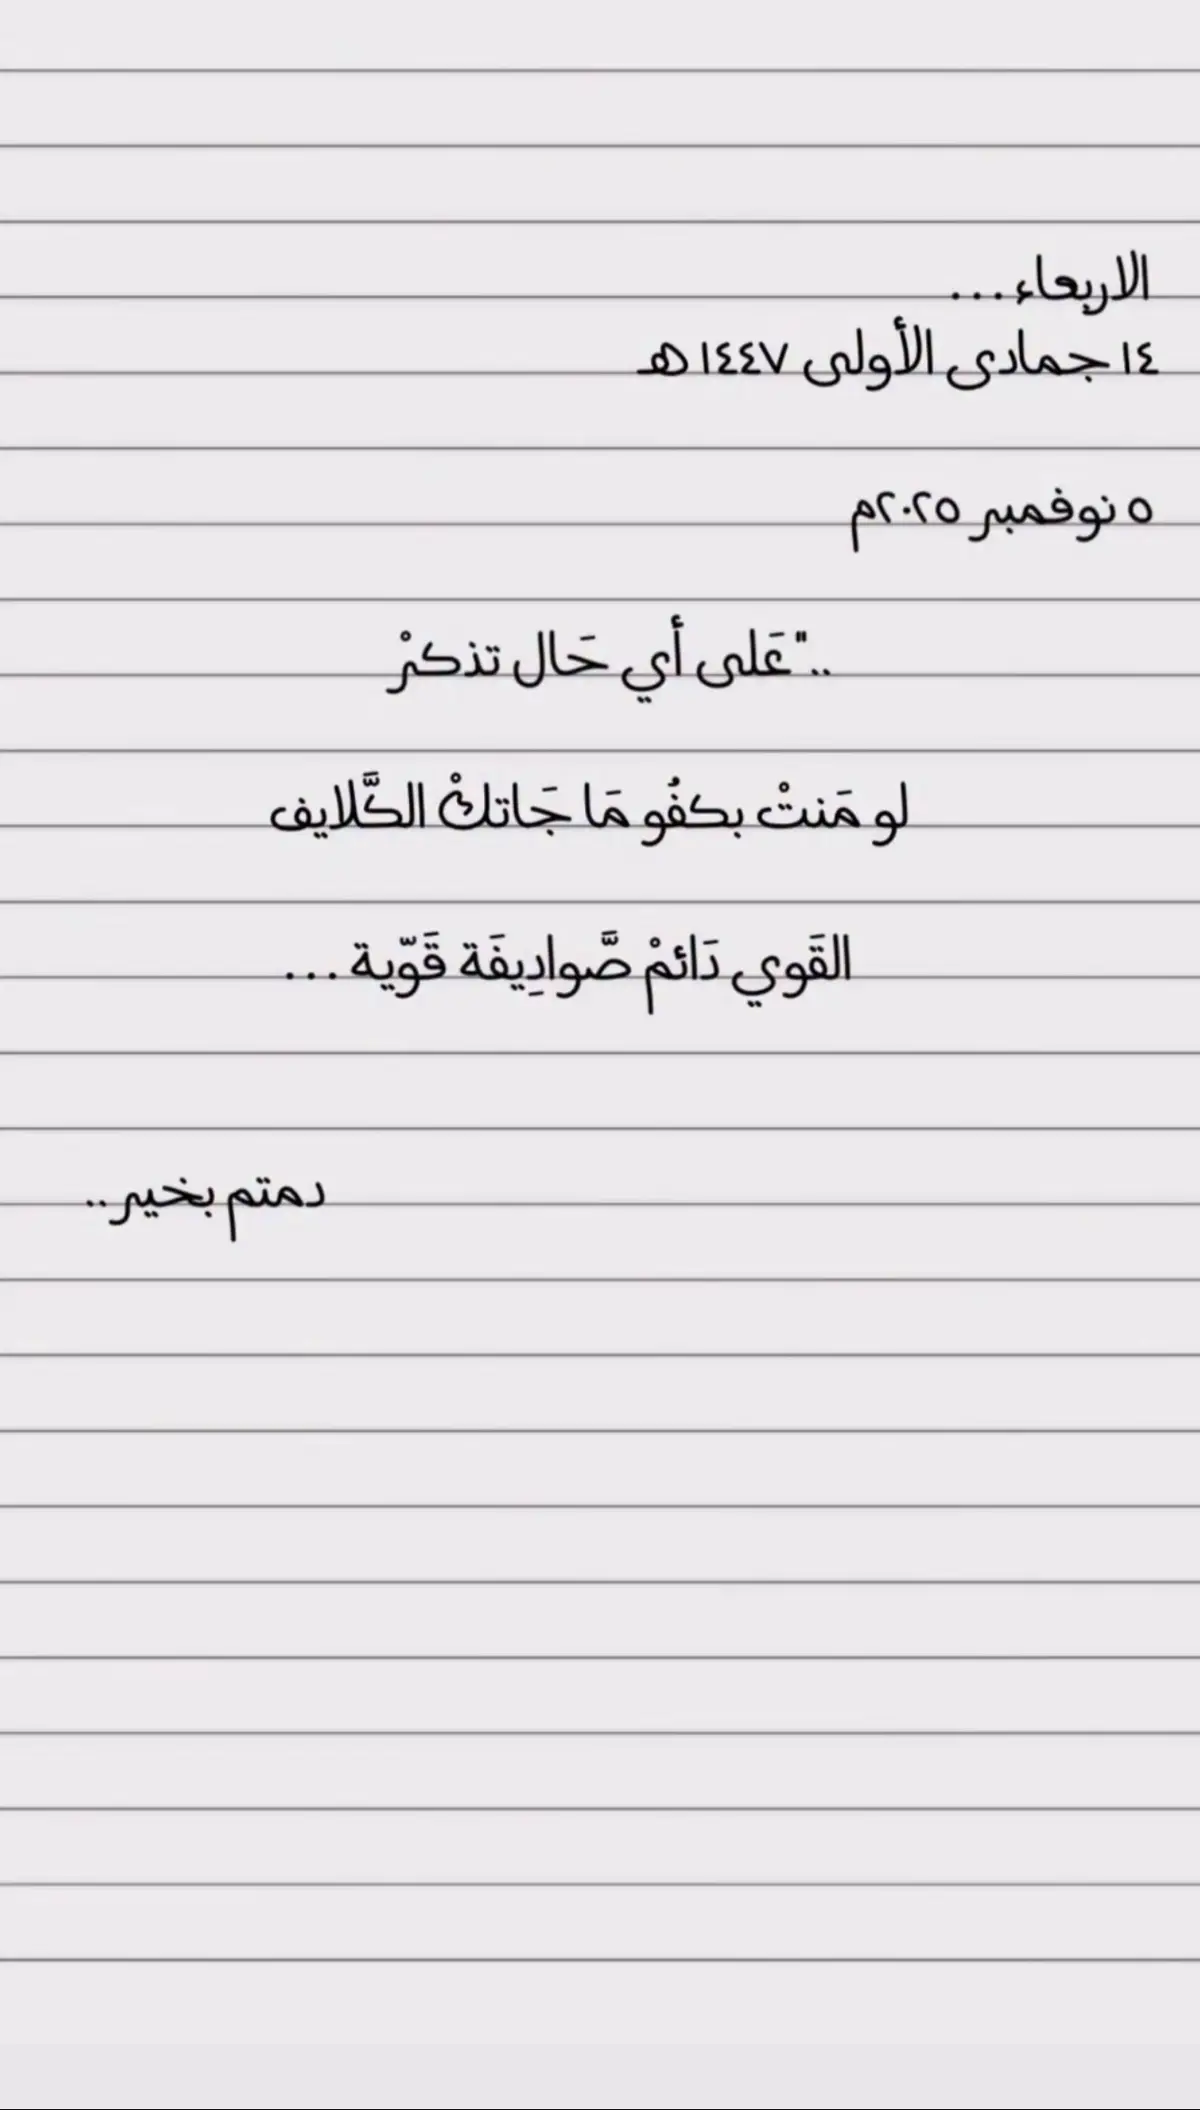 الاربعاء...
١٤ جمادى الأولى ١٤٤٧ هـ
٥ نوفمبر ٢٠٢٥م
.."عَلى أي حَال تذكرْ
لو مَنتْ بكفُو مَا جَاتكْ الكَّلايف
القَوي دَائمْ صَّوادِيفَة قَوّية ...
دمتم بخير..